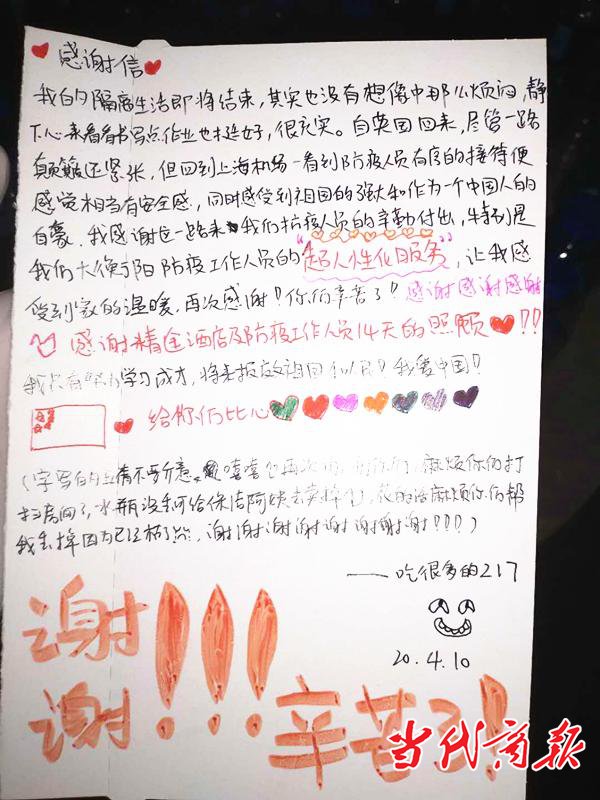 感谢信
我的隔离生活即将结束，其实也没有想像中那么烦闷，静
下心来看看书写点作业也挺好，很充实。自英国回来，尽管一路
颠簸还紧张，但回到上海机场一看到防疫人员有序的接待便
感觉相当有安全感，同时感受到祖国的强大和作为一个中国人的
自豪。我感谢这一路来我们抗疫人员的辛勤付出，特别是
我们大衡阳防疫工作人员的"超人性化服务"，让我感
受到家的温暖，再次感谢！你们辛苦了！感谢感谢感谢
感谢精途酒店及防疫工作人员14天的照顾!!
我只有努力学习成才，将来报效祖国和人民！我爱中国！
给你们比心
(字写的丑请不要介意，嘻嘻 再次 你们，麻烦你们打
扫房间了，水瓶没 可给保洁阿姨去卖掉，花的话麻烦你们帮
我丢掉因为已经枯了点，谢谢谢谢谢谢谢谢!!!)
——吃很多的217
20.4.10
谢
谢!!!辛苦了!
当代商报